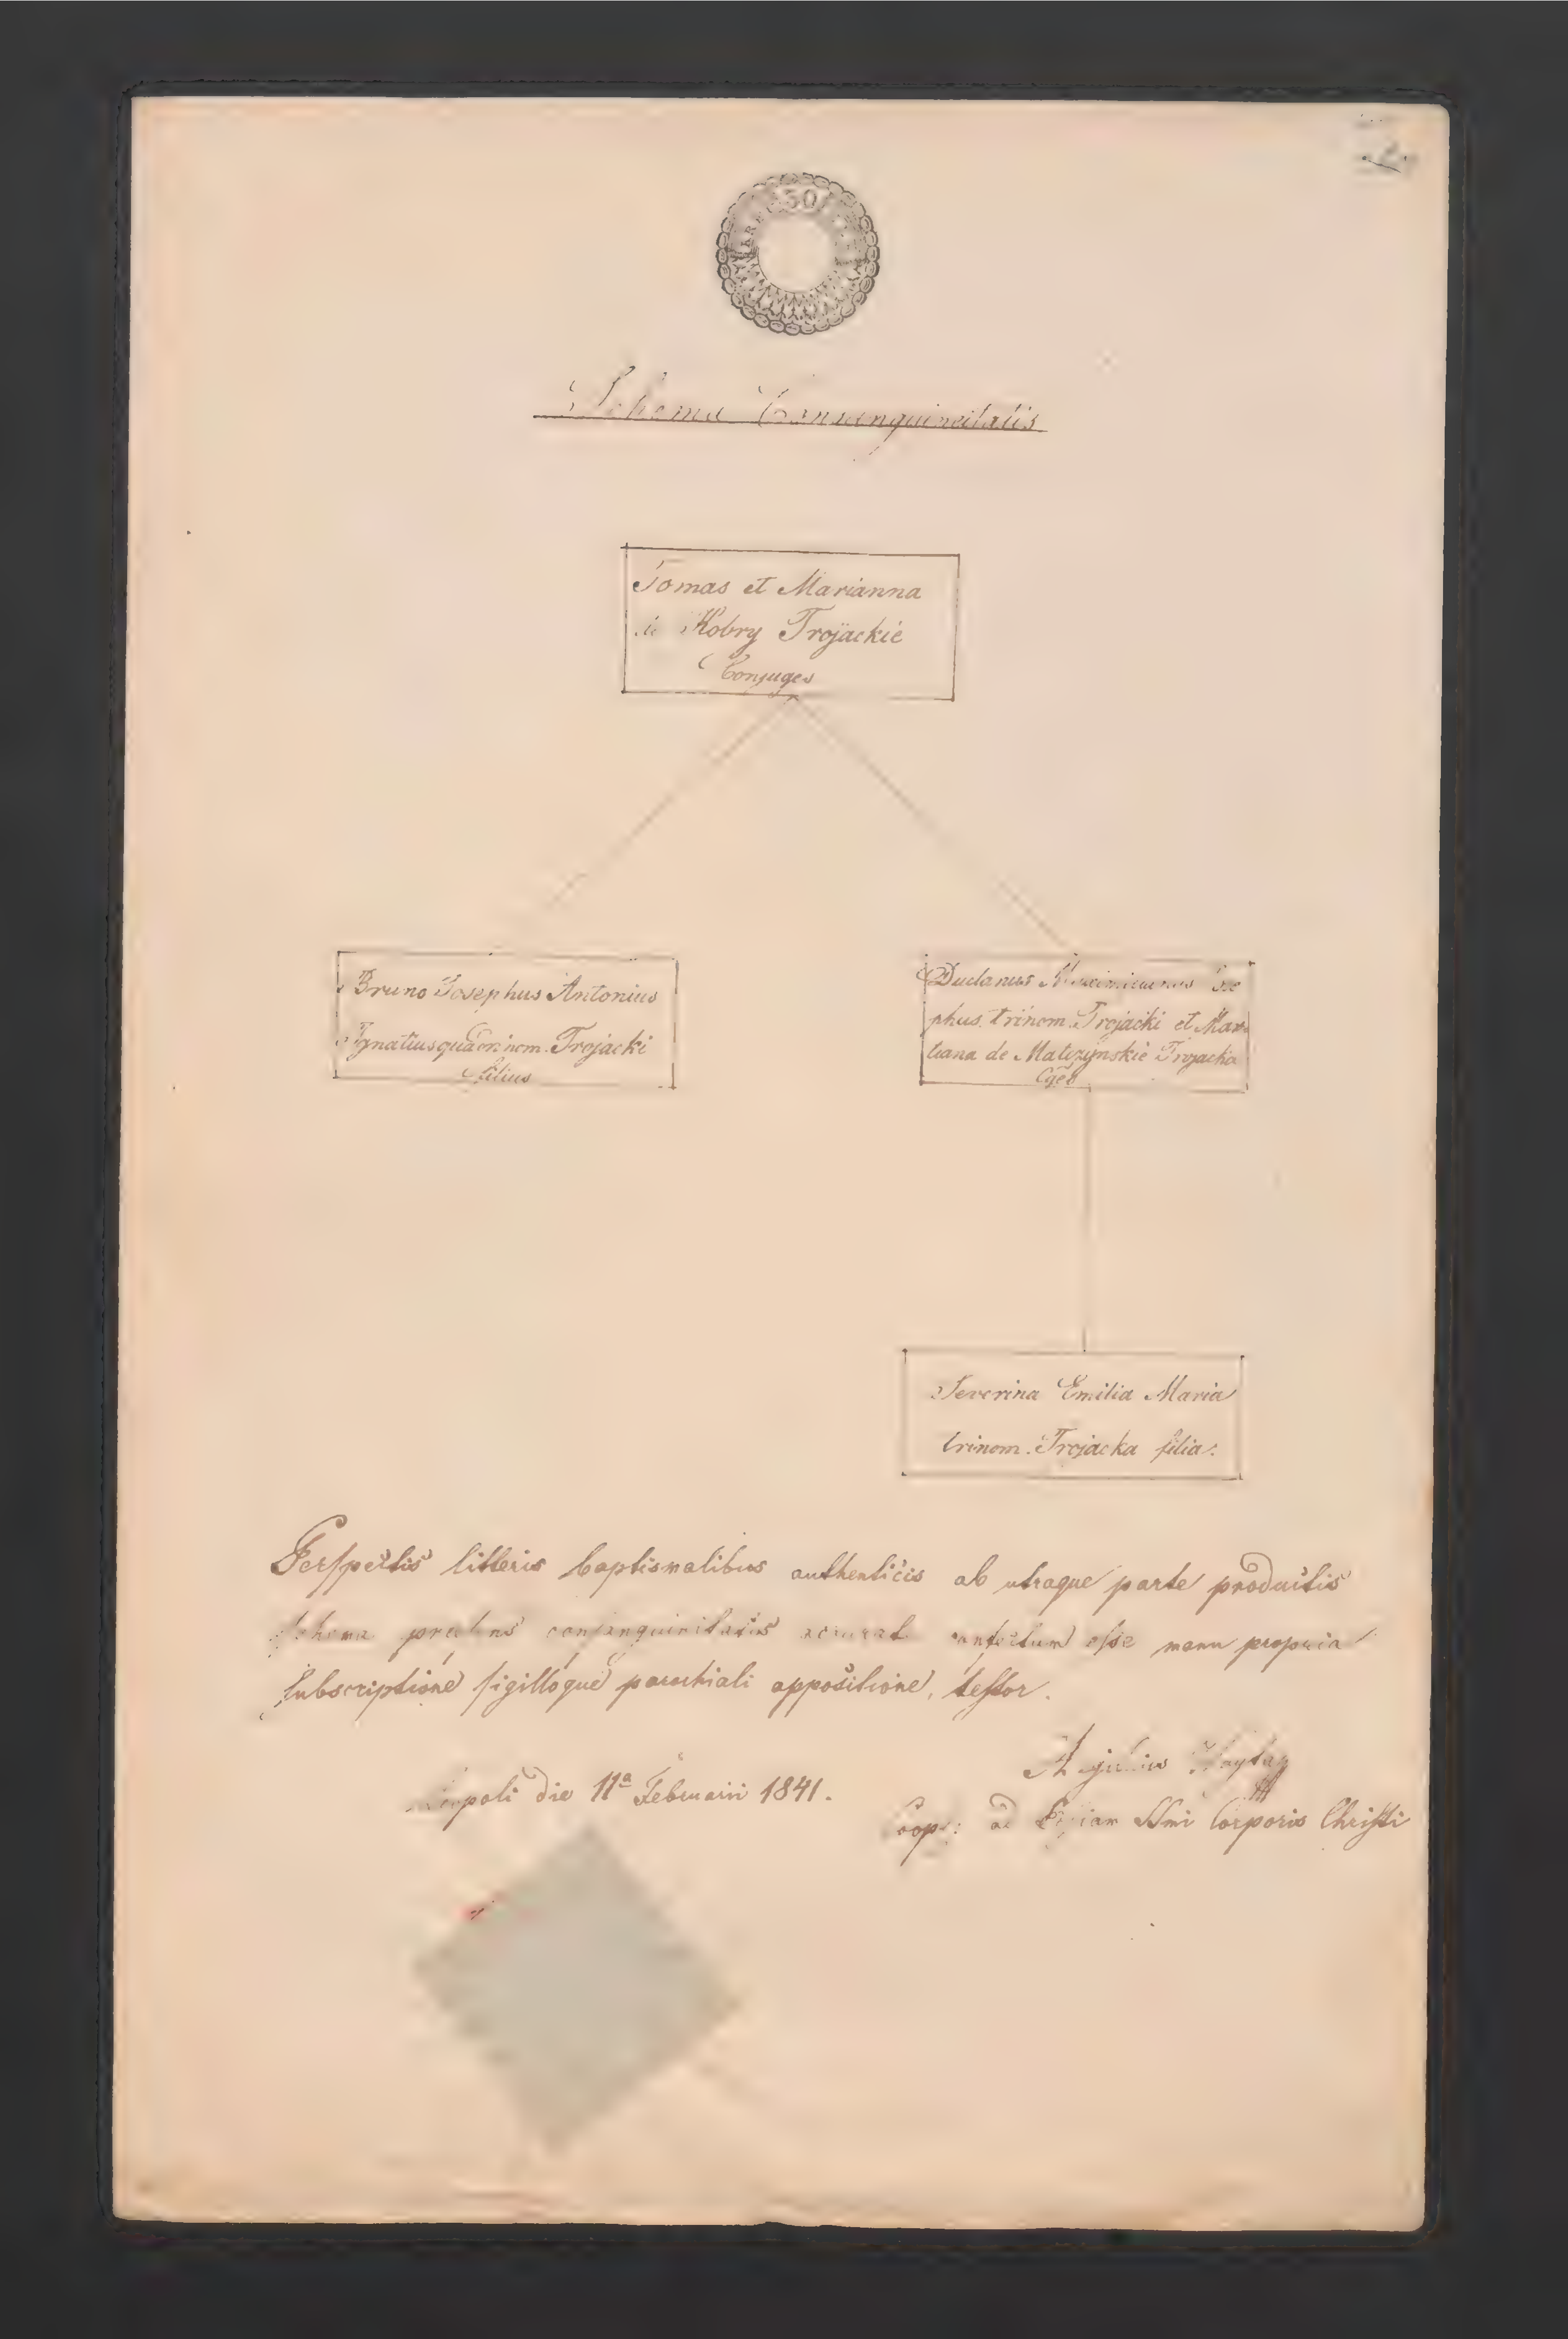 30
Schema Consanguineitatis
Tomas et Marianna
Kobry Trojackie
Conjuges
Bruno Josephus Antonius
Ignatius quadrinom. Trojacki
filius
Josephus trinom. Trojacki et Mar-
liana de Matczynskie Trojacka
Cges
Severina Emilia Maria
trinom. Trojacka filia.
Perspectis litteris baptismalibus authenticis ab utraque parte productis
schema consanguinitatis confectum esse manu propria
subscriptione sigilloque parochiali appositione, testor.
Leopoli die 11ª Februarii 1841.
Coop: ad SSmi Corporis Christi